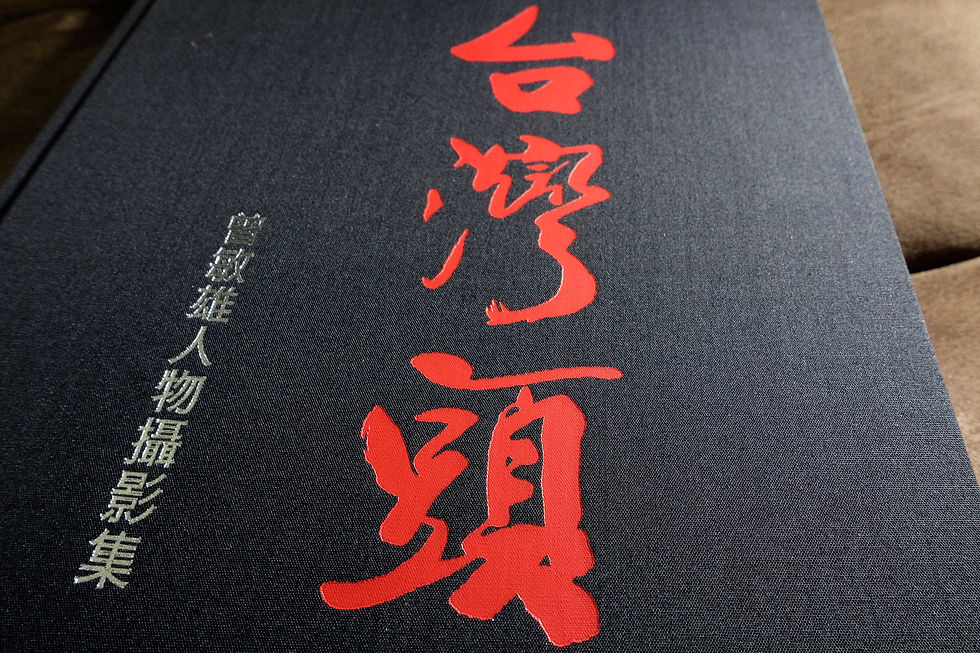 台灣頭
曾敏雄人物攝影集